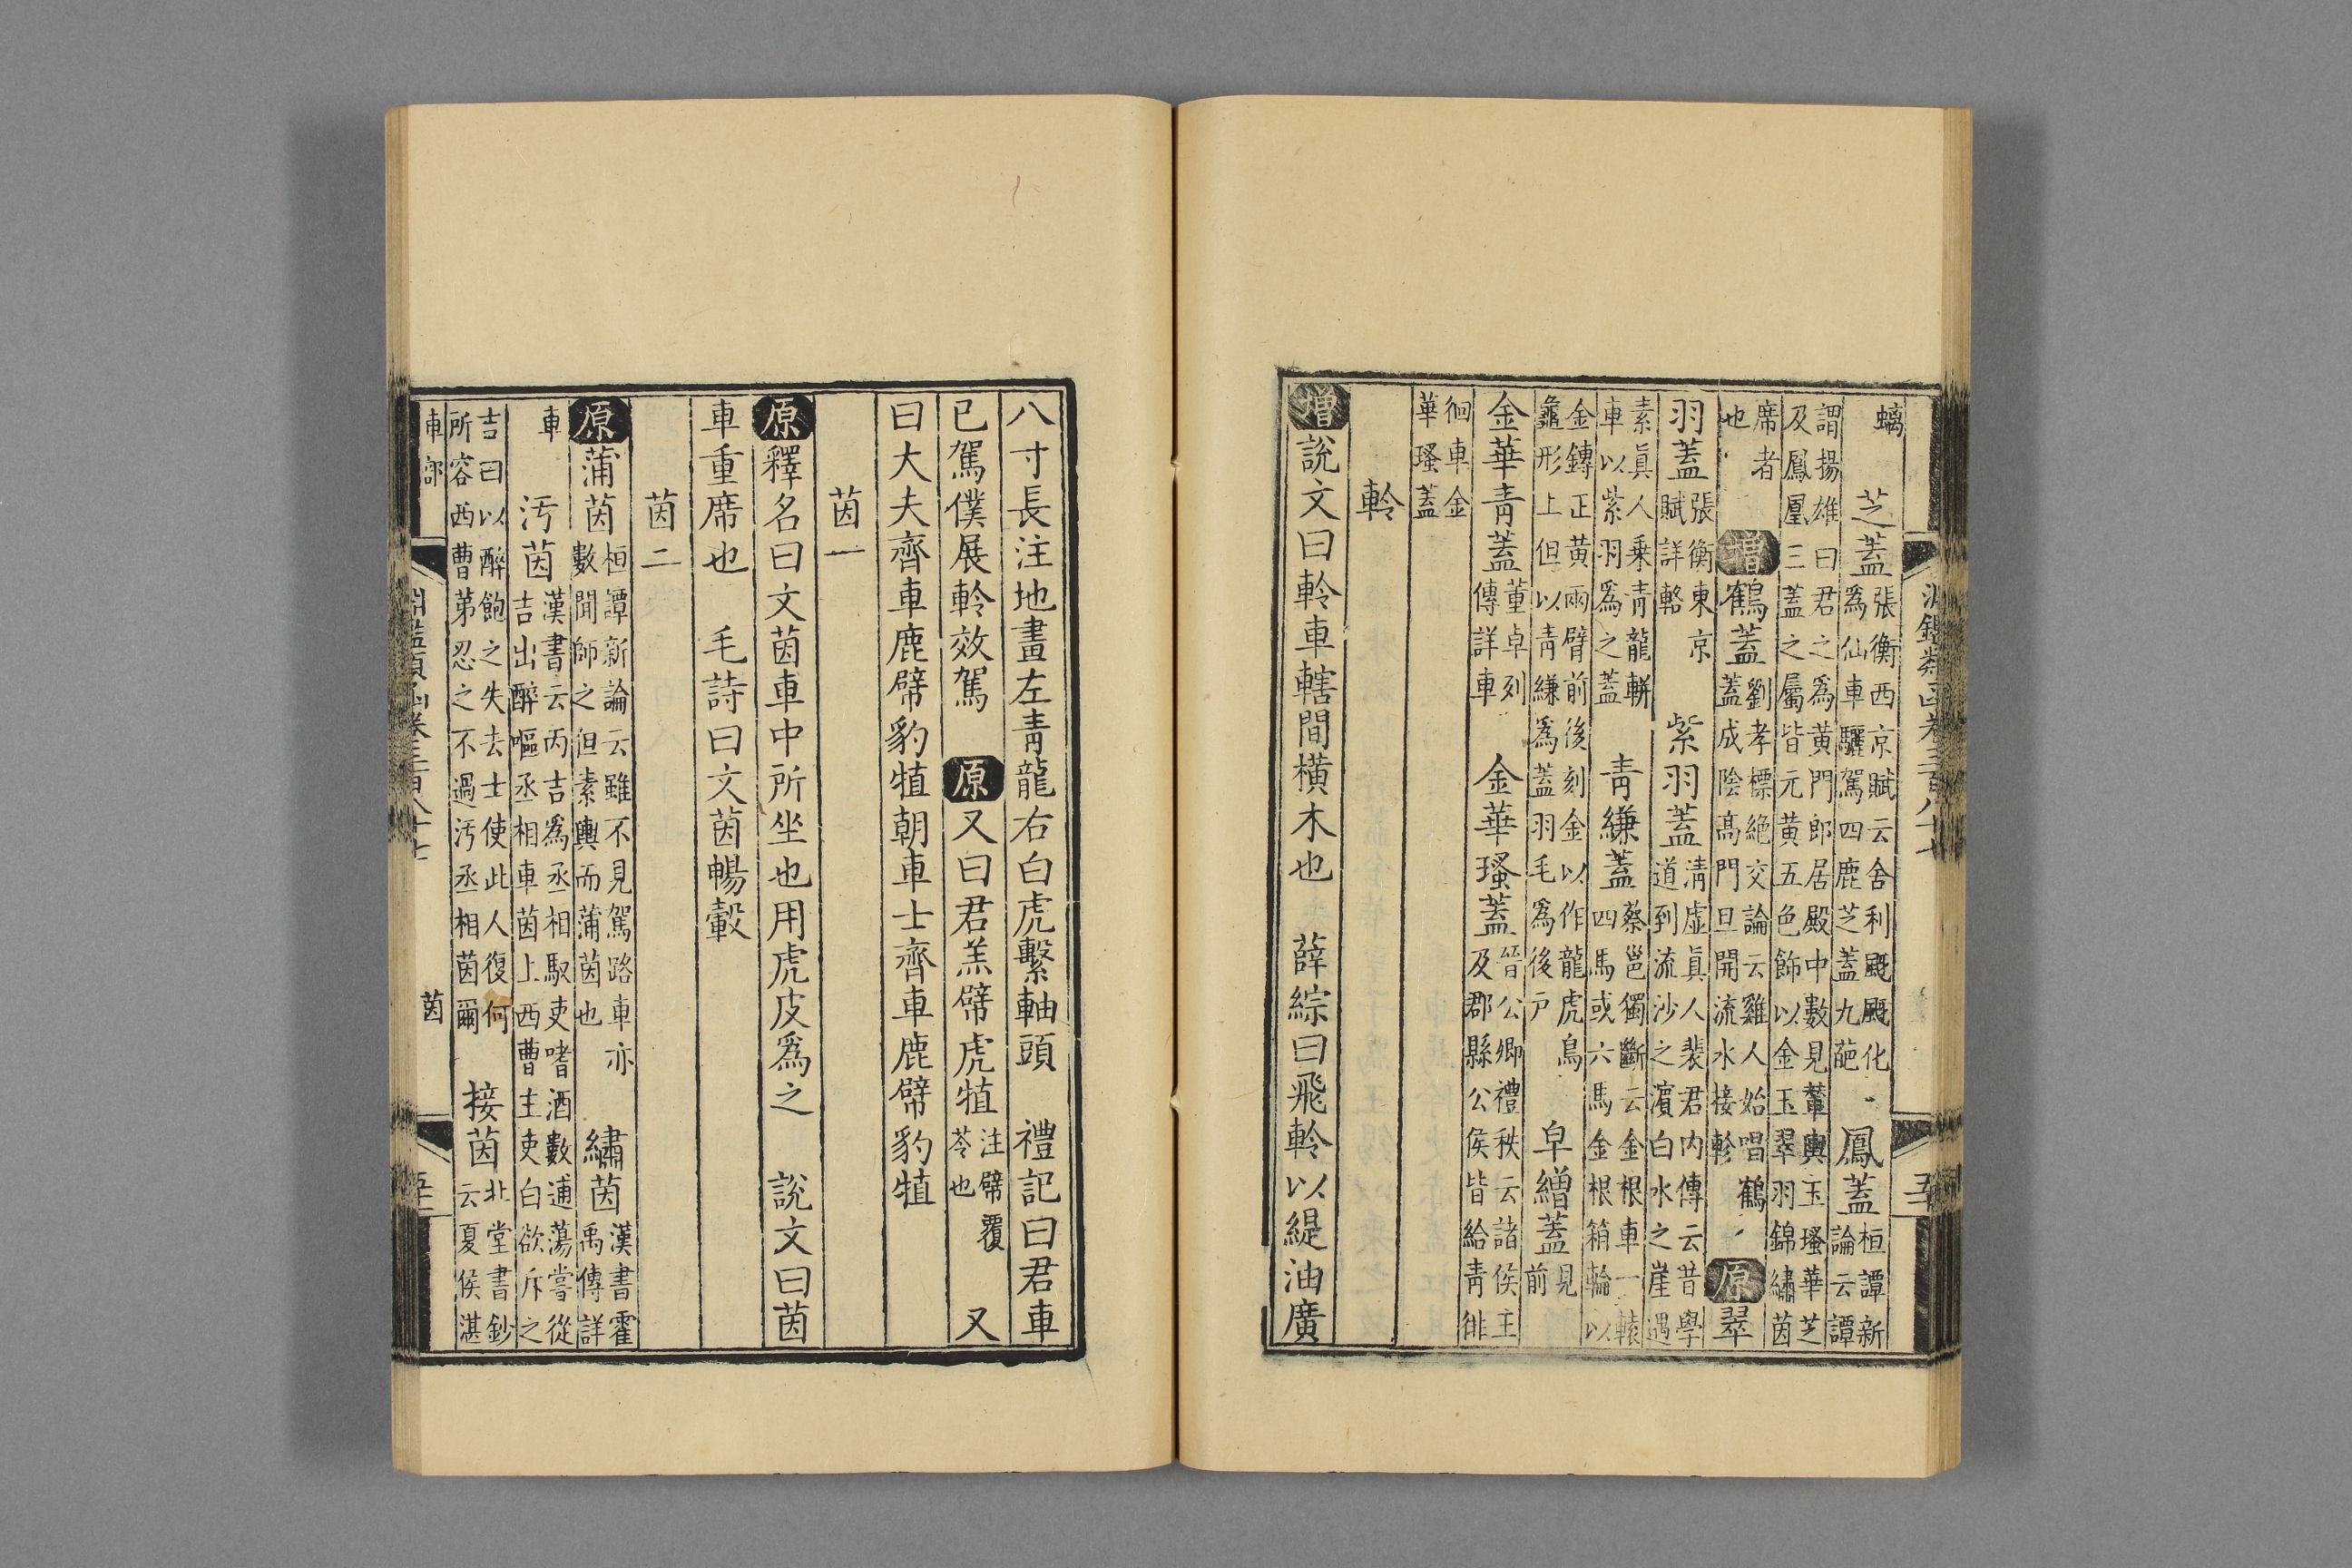 螭　芝蓋張衡西京賦云含利颬颬化為仙車驪駕四鹿芝蓋九葩　鳳蓋桓譚新論云譚
謂揚雄曰君之為黃門郎居殿中數見輦輿玉瑵華芝及鳳凰三蓋之屬皆元黃五色飾以金玉翠羽錦繡茵
席者也　增鶴蓋劉孝標絕交論云雞人始唱鶴蓋成陰高門旦開流水接軫　原翠
羽蓋張衡東京賦詳輅　紫羽蓋清虛真人裴君內傳云昔學道到流沙之濱白水之崖遇
素真人乗青龍軿車以紫羽為之蓋　青縑蓋蔡邕獨斷云金根車一轅四馬或六馬金根箱輪以
金鏄正黃兩臂前後刻金以作龍虎鳥龜形上但以青縑為蓋羽毛為後戶　皁繒蓋見前
金華青蓋董卓列傳詳車　金華瑵蓋晉公卿禮秩云諸侯主及郡縣公侯皆給青徘
徊車金華瑵蓋
軨
增說文曰軨車轄間橫木也　薛綜曰飛軨以緹油廣
八寸長注地畫左青龍右白虎繫軸頭　禮記曰君車
已駕僕展軨效駕　原又曰君羔幦虎犆注幦覆苓也　又
曰大夫齊車鹿幦豹犆朝車士齊車鹿幦豹犆
茵一
原釋名曰文茵車中所坐也用虎皮為之　說文曰茵
車重席也　毛詩曰文茵暢轂
茵二
原蒲茵桓譚新論云雖不見駕路車亦數聞師之但素輿而蒲茵也　繡茵漢書霍禹傳詳
車　汚茵漢書云丙吉為丞相馭吏嗜酒數逋蕩嘗從吉出醉嘔丞相車茵上西曹主吏白欲斥之
吉曰以醉飽之失去士使此人復何所容西曹第忍之不過汚丞相茵爾　接茵北堂書鈔云夏侯湛
車部　茵